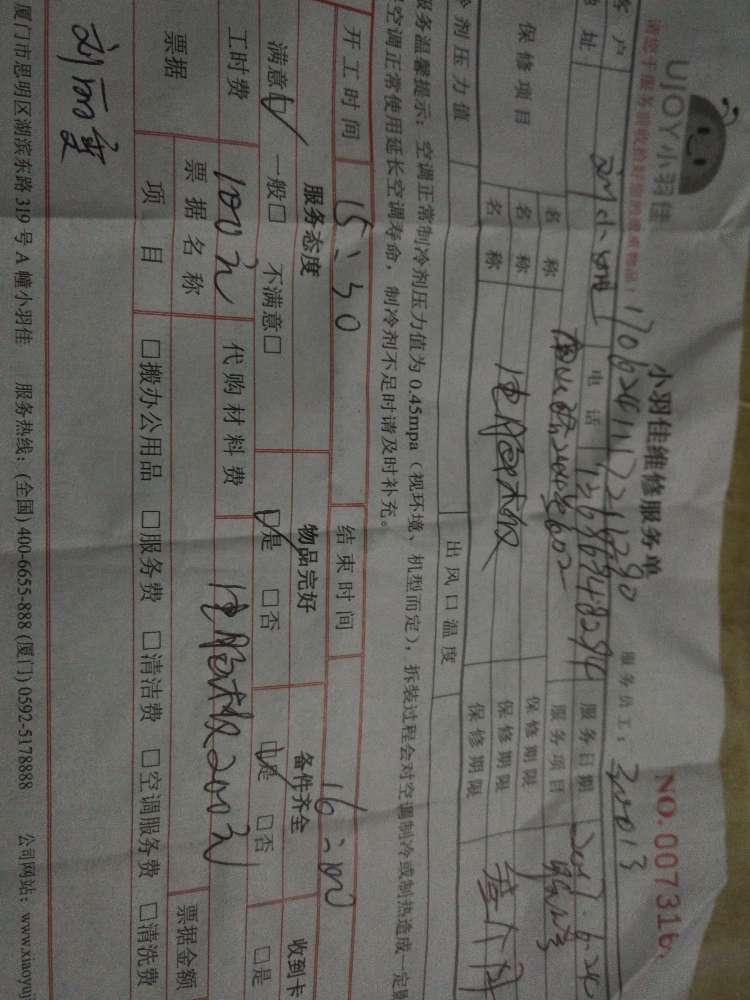 UJOY小羽佳
小羽佳维修服务单
NO.007316
请您于服务前收捡好您的贵重物品!
服务员工:
30013
客户
电话
服务日期
2017.6.24
地址
服务项目
保修项目
名称
保修期限
名称
电脑板
保修期限
叁个月
名称
保修期限
冷剂压力值
出风口温度
服务温馨提示:空调正常制冷剂压力值为0.45mpa(视环境、机型而定),拆装过程会对空调制冷或制热造成一定影
空调正常使用延长空调寿命,制冷剂不足时请及时补充。
开工时间
15:30
结束时间
16:00
服务态度
物品完好
备件齐全
收到卡
满意☑ 一般□ 不满意□
☑是 □否
☑是 □否
□是
工时费
100元
代购材料费
电脑板200元
票据
票据名称
票据金额
项目
□搬办公用品 □服务费 □清洁费 □空调服务费 □清洗费
厦门市思明区湖滨东路319号A幢小羽佳 服务热线:(全国)400-6655-888(厦门)0592-5178888 公司网站:www.xiaoyuj